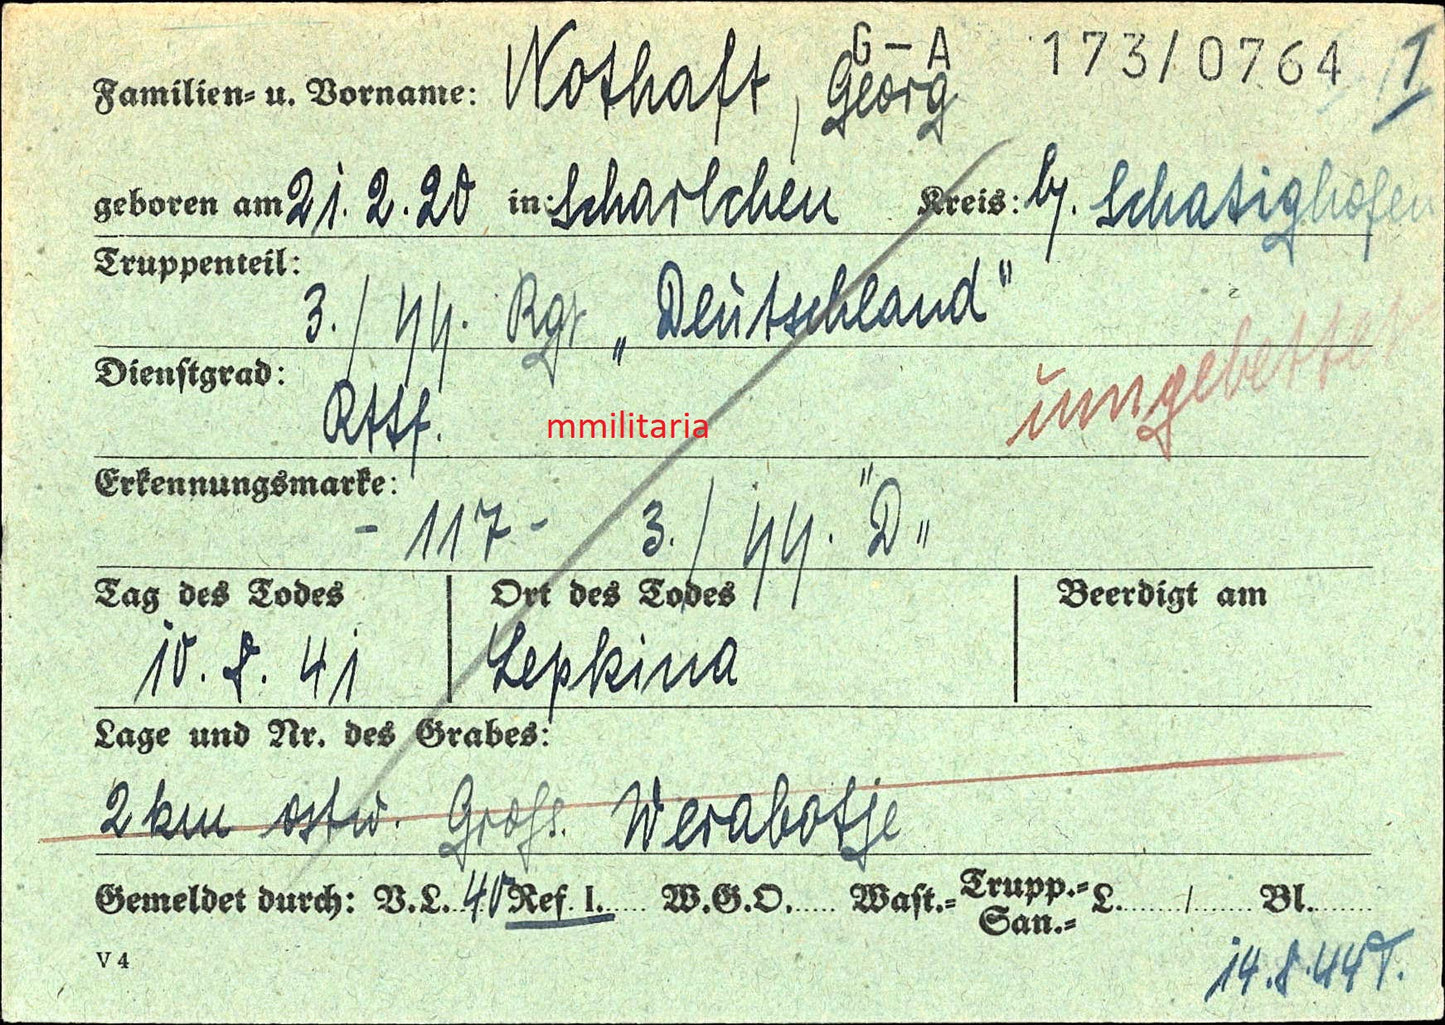 G-A 173/0764 1
Familien- u. Vorname: Nothaft, Georg
geboren am 21.2.20 in: Scharlchen Kreis: by. Schatighofen
Truppenteil:
3./SS. Rgt „Deutschland"
umgebettet
Dienstgrad:
Rttf.
mmilitaria
Erkennungsmarke:
- 117 - 3./SS. "D"
Tag des Todes Ort des Todes Beerdigt am
10. 8. 41 Lepkina
Lage und Nr. des Grabes:
2 km ostw. Groß. Werabotje
Gemeldet durch: V.L. 40 Ref. I. W.G.O. Wast.- Trupp.- San.- L. / Bl.
V 4
14.8.44 T.